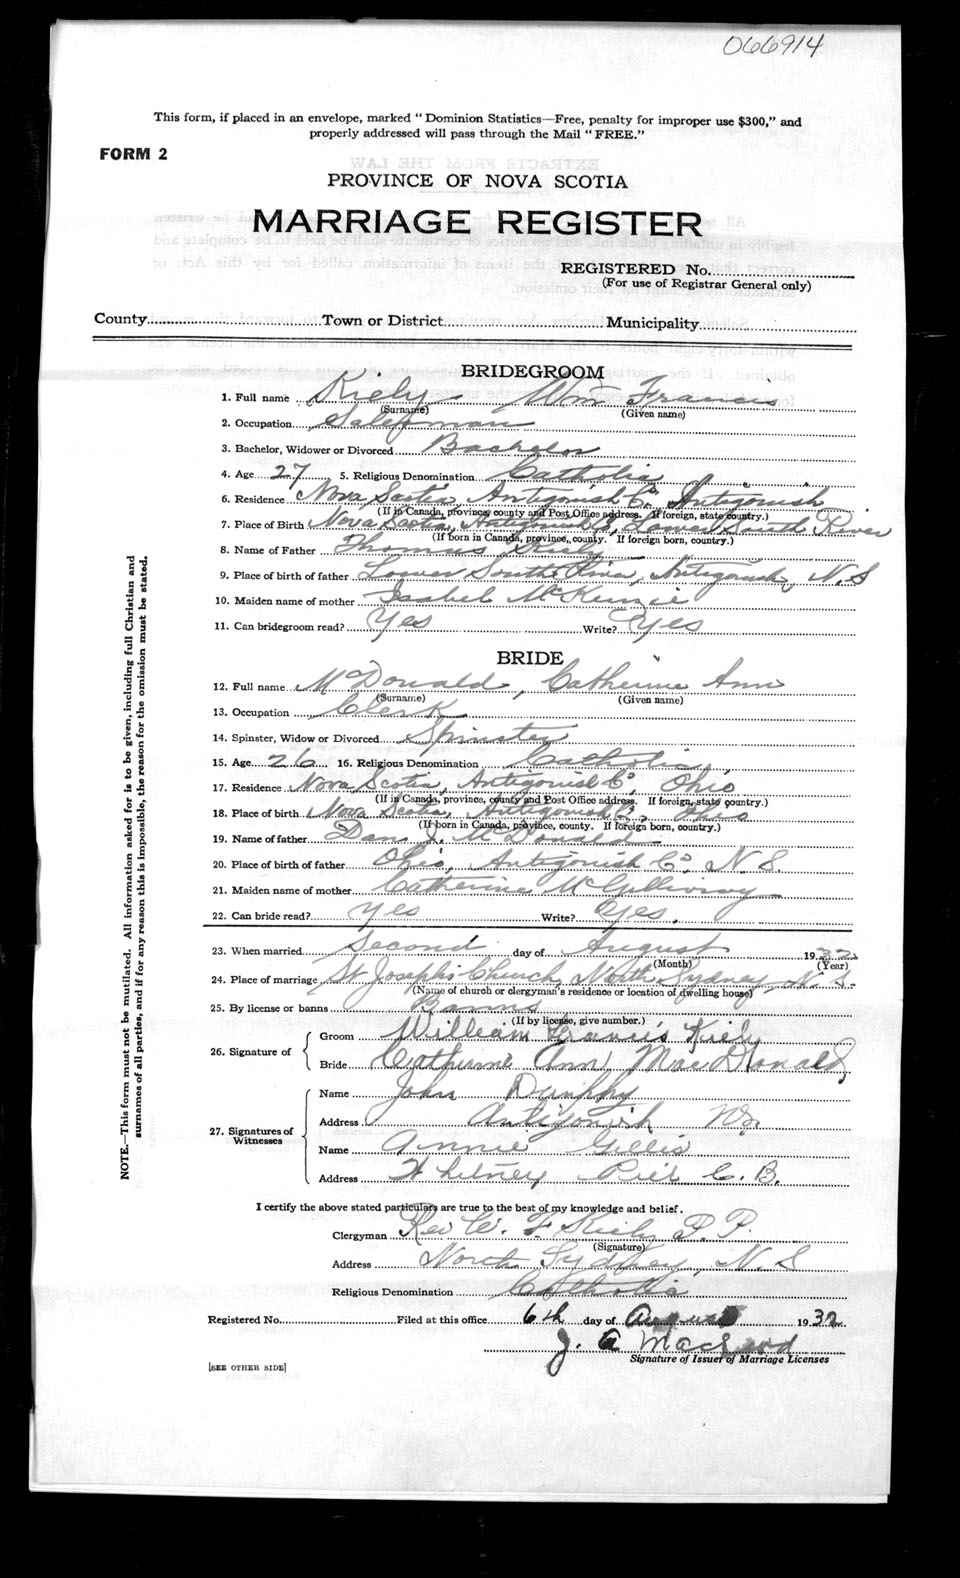 066914
This form, if placed in an envelope, marked "Dominion Statistics—Free, penalty for improper use $300," and
properly addressed will pass through the Mail "FREE."
FORM 2
PROVINCE OF NOVA SCOTIA
MARRIAGE REGISTER
REGISTERED No.
(For use of Registrar General only)
County Town or District Municipality
BRIDEGROOM
1. Full name Kiely Wm Francis
(Surname) (Given name)
2. Occupation Salesman
3. Bachelor, Widower or Divorced Bachelor
4. Age 27 5. Religious Denomination Catholic
6. Residence Nova Scotia, Antigonish Co. Antigonish
(If in Canada, province, county and Post Office address. If foreign, state country.)
7. Place of Birth Nova Scotia, Antigonish Co, Lower South River
(If born in Canada, province, county. If foreign born, country.)
8. Name of Father Thomas Kiely
9. Place of birth of father Lower South River, Antigonish, N.S
10. Maiden name of mother Isabel McKenzie
11. Can bridegroom read? Yes Write? Yes
BRIDE
12. Full name McDonald, Catherine Ann
(Surname) (Given name)
13. Occupation Clerk
14. Spinster, Widow or Divorced Spinster
15. Age 26 16. Religious Denomination Catholic
17. Residence Nova Scotia, Antigonish Co, Ohio
(If in Canada, province, county and Post Office address. If foreign, state country.)
18. Place of birth Nova Scotia, Antigonish Co, Ohio
(If born in Canada, province, county. If foreign born, country.)
19. Name of father Dan J. McDonald
20. Place of birth of father Ohio, Antigonish Co, N.S.
21. Maiden name of mother Catherine McGillivray
22. Can bride read? Yes Write? Yes.
23. When married Second day of August 1932
(Month) (Year)
24. Place of marriage St Joseph's Church, North Sydney, N.S.
(Name of church or clergyman's residence or location of dwelling house)
25. By license or banns Banns
(If by license, give number.)
26. Signature of Groom William Francis Kiely
Bride Catherine Ann MacDonald
27. Signatures of Witnesses
Name John Dunphy
Address Antigonish NS.
Name Annie Gillis
Address Whitney Pier C.B.
I certify the above stated particulars are true to the best of my knowledge and belief.
Clergyman Rev C. F. Kiely P.P.
(Signature)
Address North Sydney, N.S
Religious Denomination Catholic
Registered No. Filed at this office 6th day of August 1932
J. A MacLeod
Signature of Issuer of Marriage Licenses
[SEE OTHER SIDE]
NOTE.—This form must not be mutilated. All information asked for is to be given, including full Christian and
surnames of all parties, and if for any reason this is impossible, the reason for the omission must be stated.